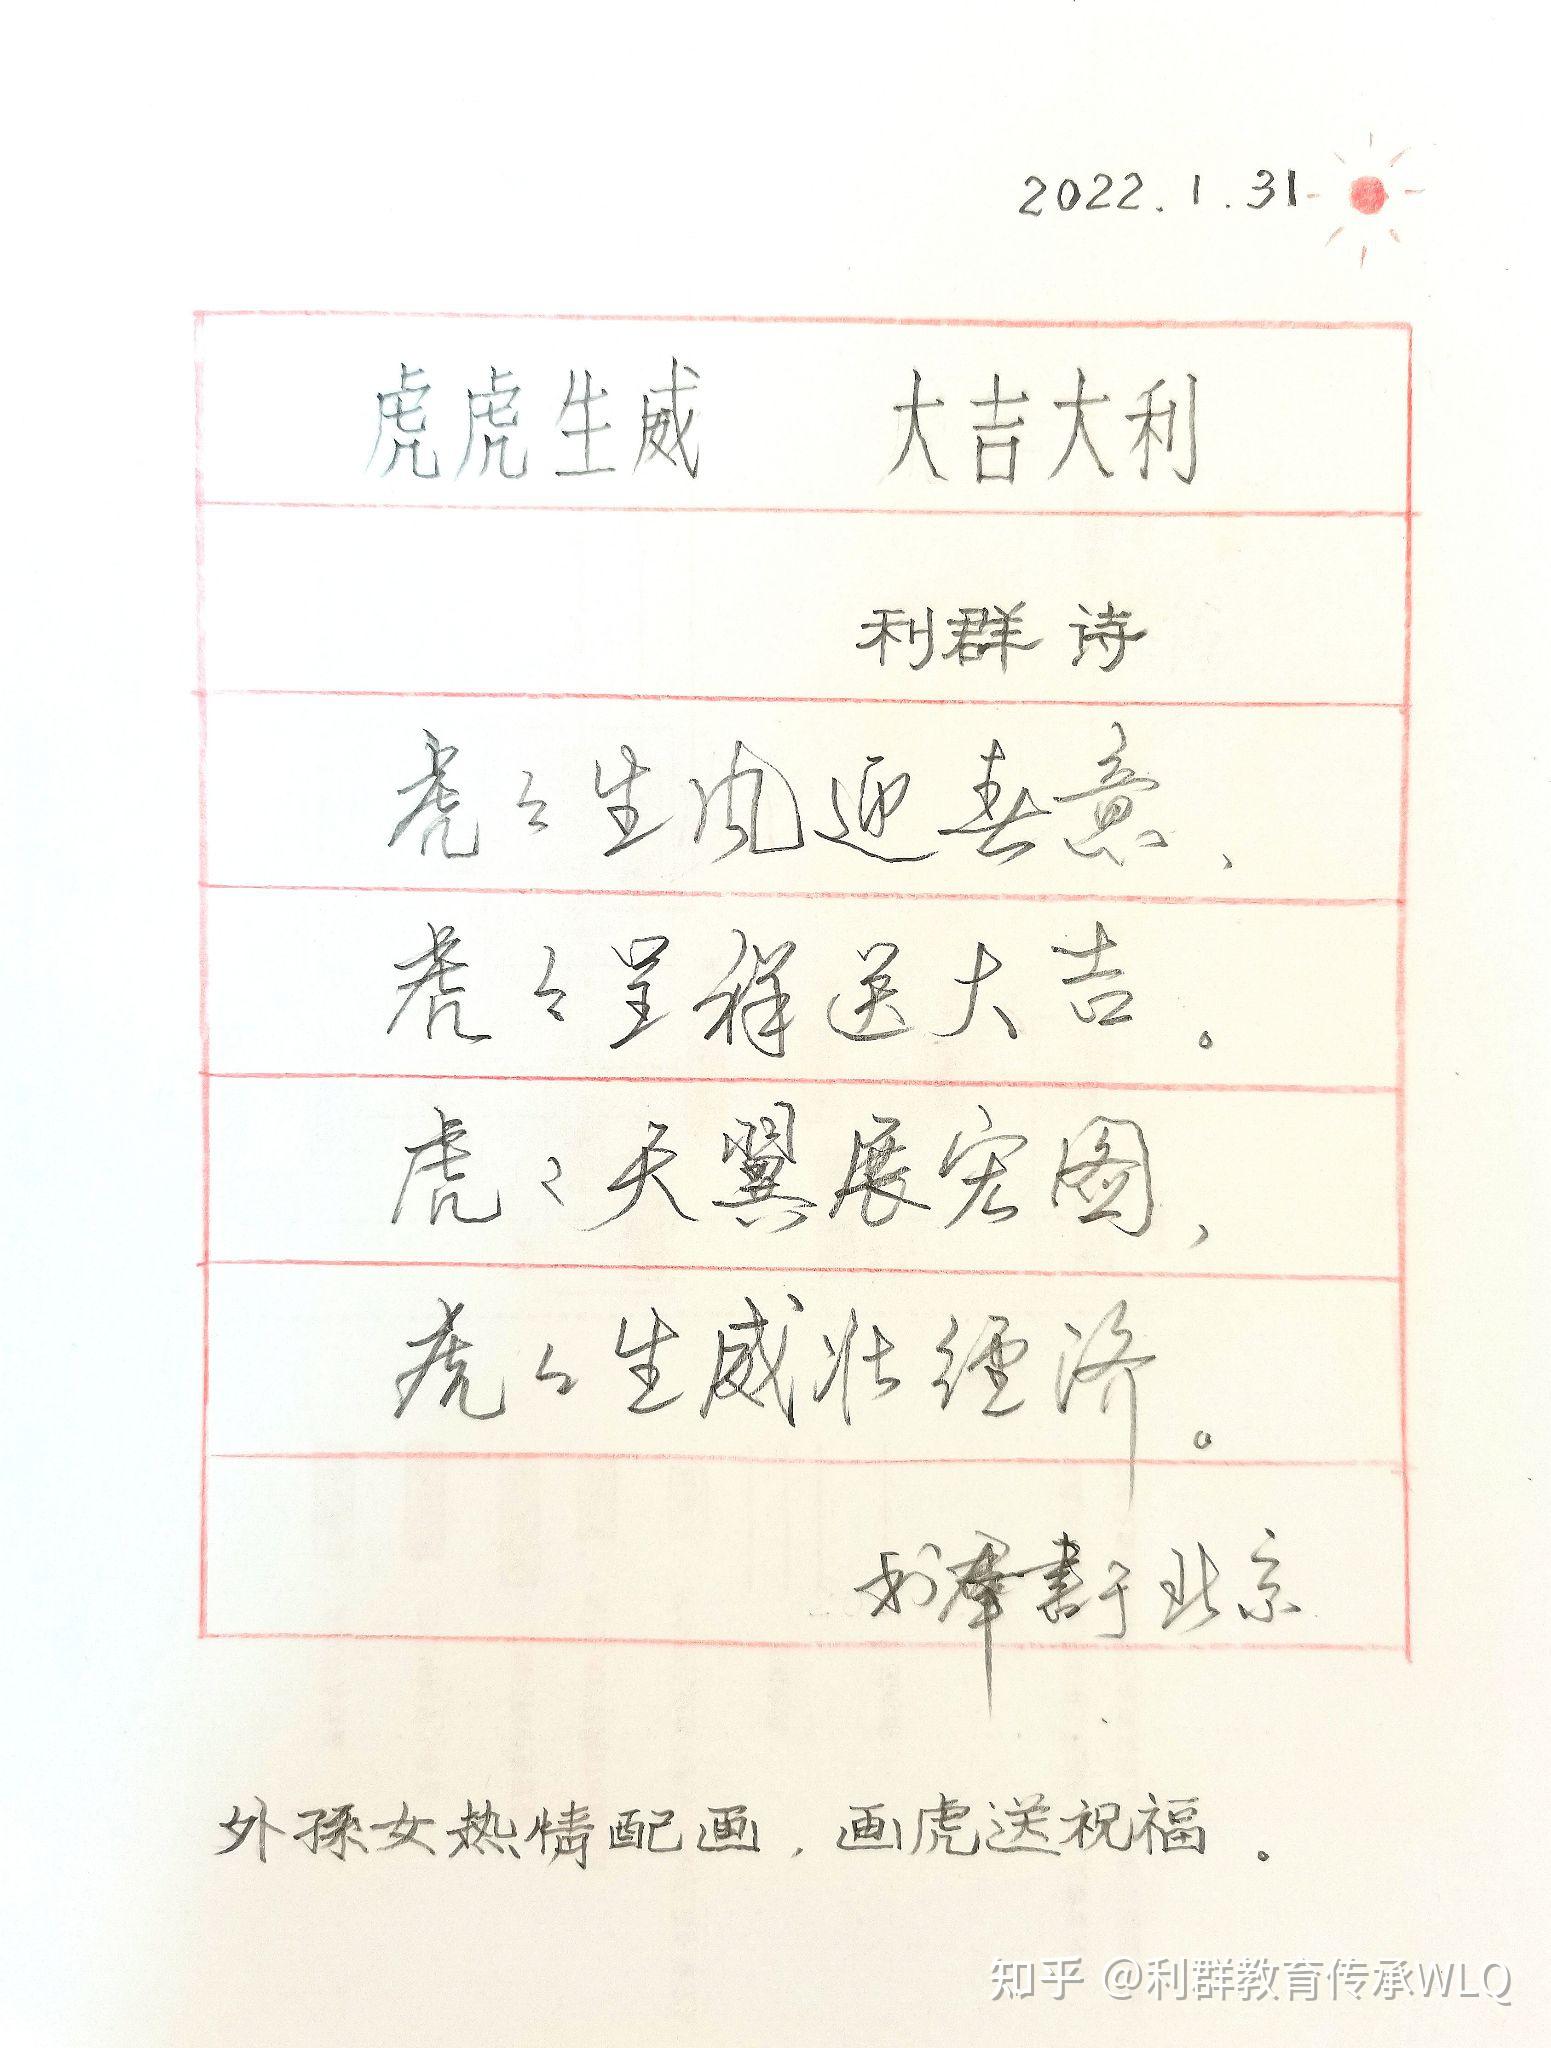 2022.1.31
虎虎生威 大吉大利
利群 诗
虎々生风迎春意，
虎々呈祥送大吉。
虎々天翼展宏图，
虎々生威壮经济。
利群书于北京
外孫女热情配画，画虎送祝福。
知乎 @利群教育传承WLQ